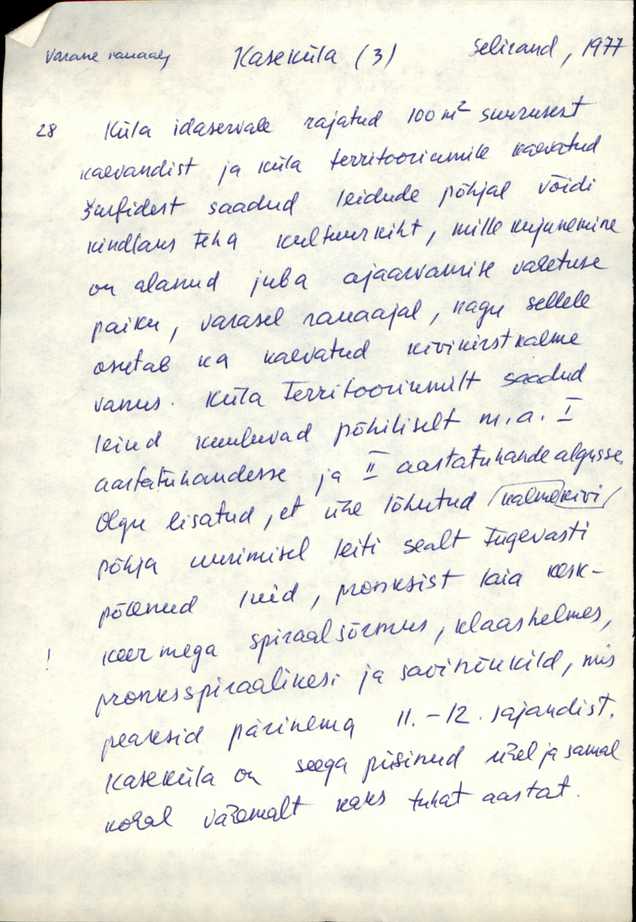 Varane rauaaeg Kaseküla (3) Selirand, 1977
28 Küla idaservale rajatud 100 m² suurusest
kaevandist ja küla territooriumile kaevatud
šurfidest saadud leidude põhjal võidi
kindlaks teha kultuurkiht, mille kujunemine
on alanud juba ajaarvamise vahetuse
paiku, varasel rauaajal, nagu sellele
osutab ka kaevatud kivikirstkalme
vanus. Küla territooriumilt saadud
leiud kuuluvad põhiliselt m.a. I
aastatuhandesse ja II aastatuhande algusse.
Olgu lisatud, et ühe lõhutud kalmekivi
põhja uurimisel leiti sealt tugevasti
põlenud luid, pronksist laia kesk-
keermega spiraalsõrmus, klaashelmes,
! pronksspiraalikesi ja savinõukild, mis
peaksid pärinema 11.-12. sajandist.
Kaseküla on seega püsinud ühel ja samal
kohal vähemalt kaks tuhat aastat.